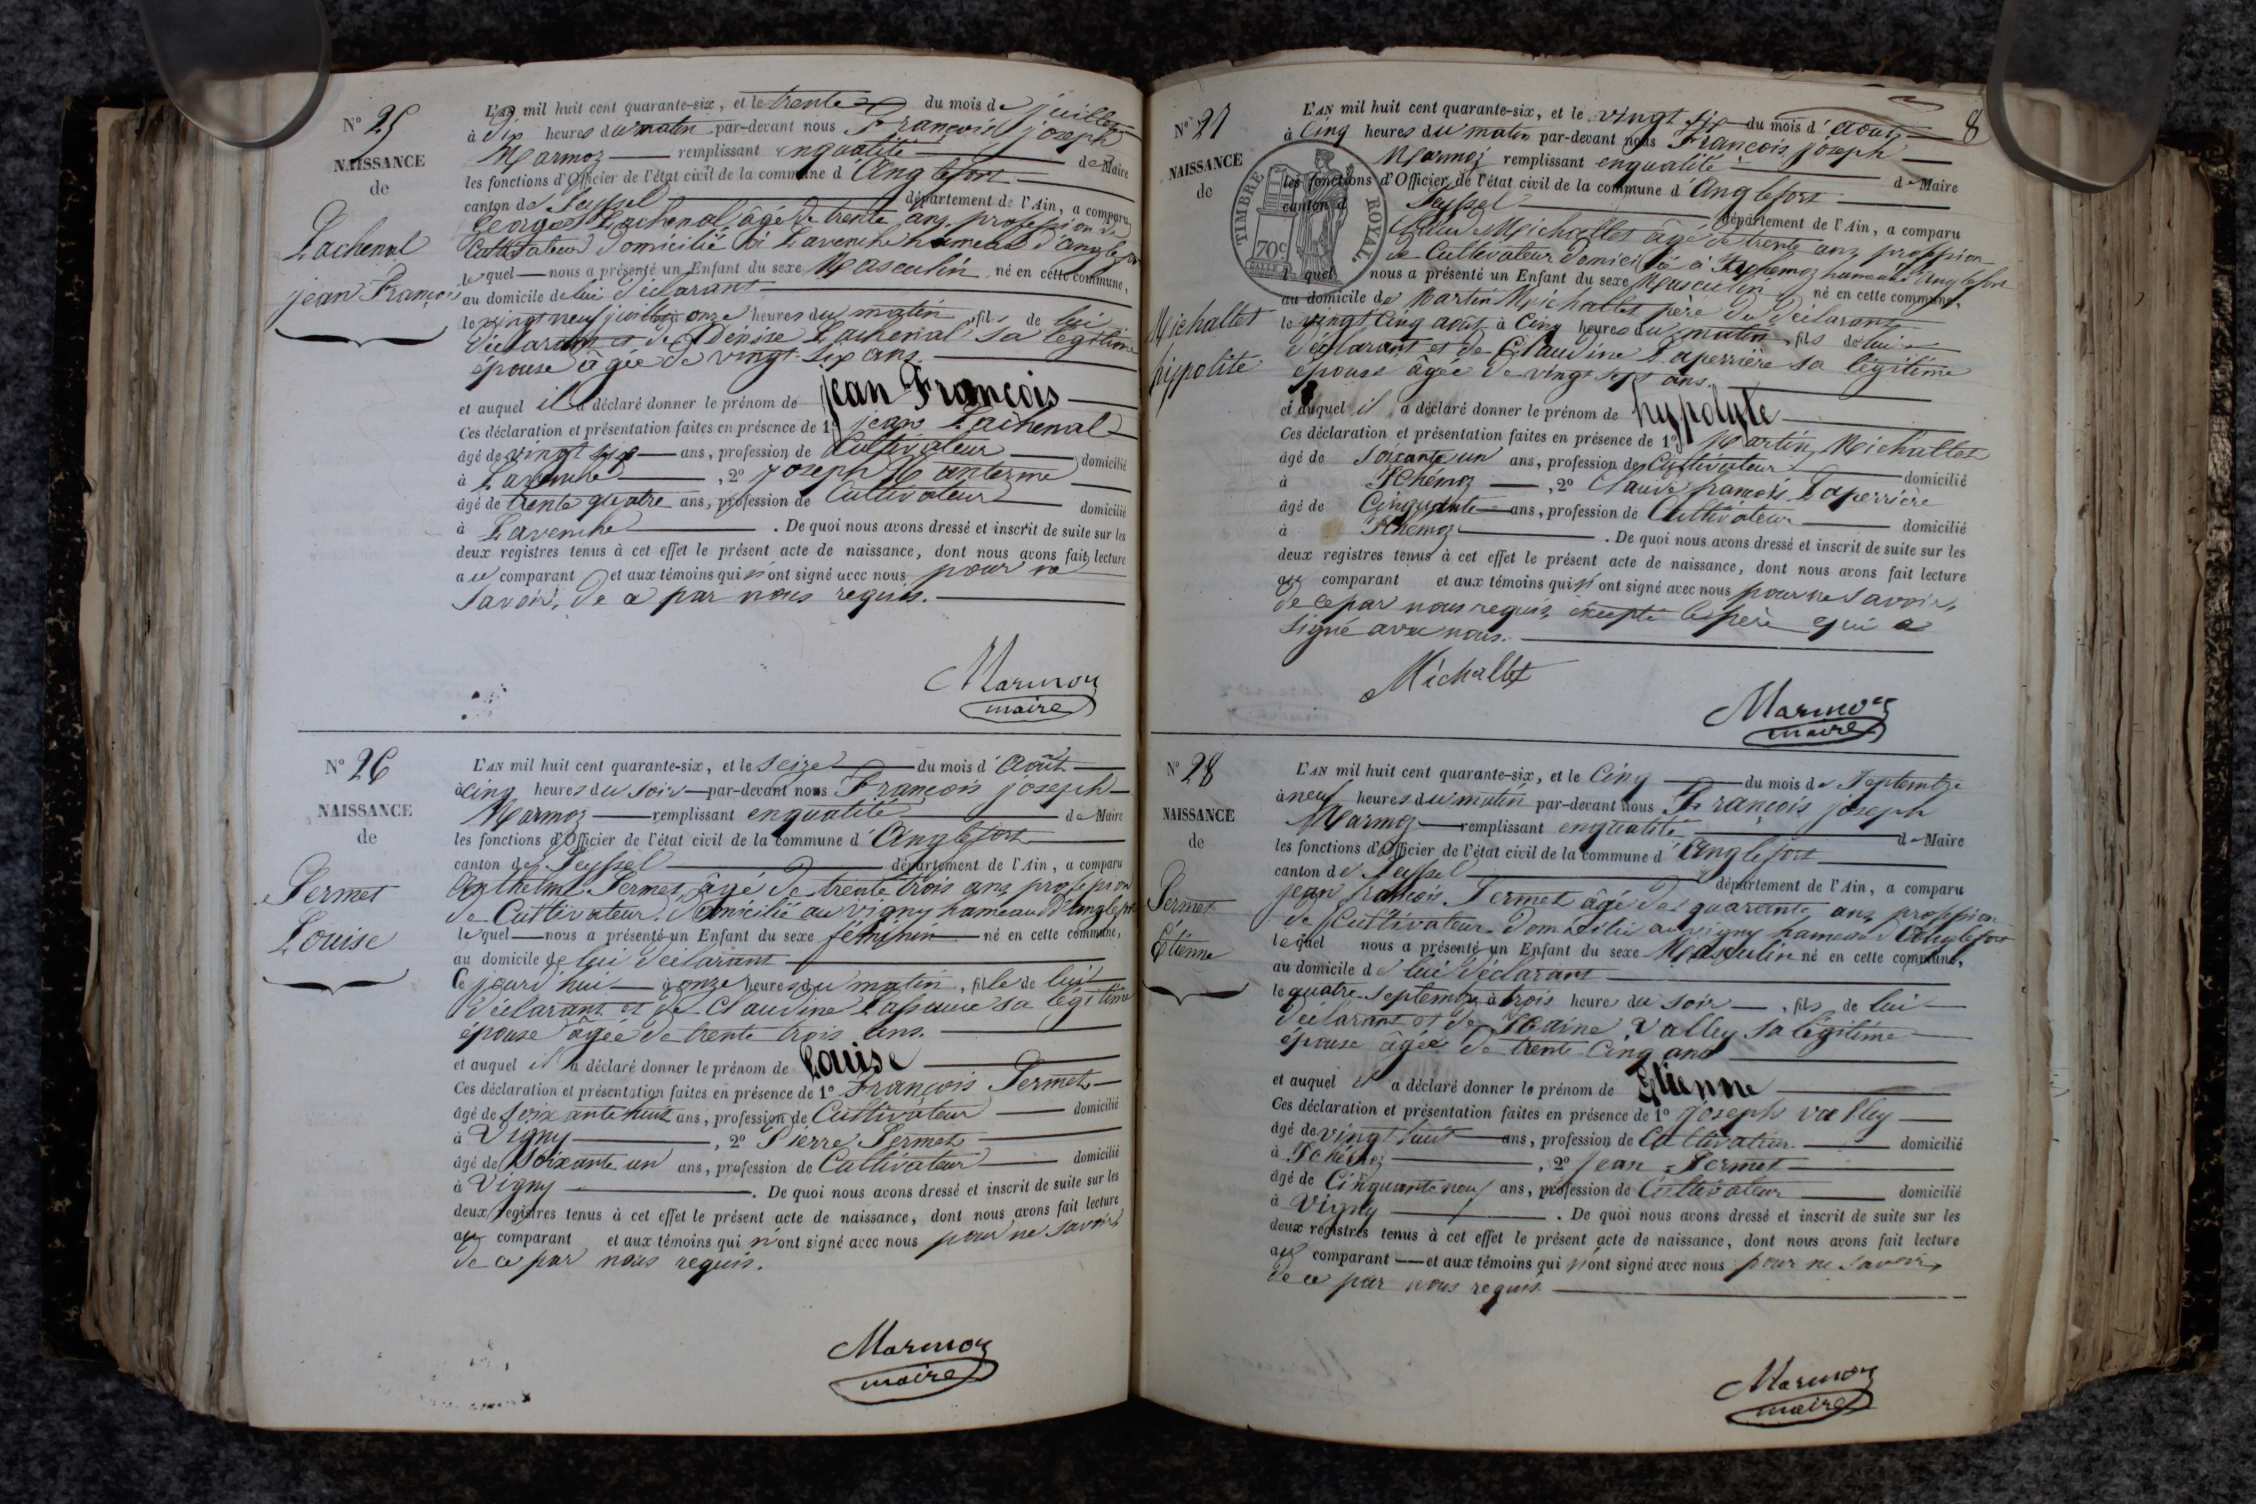 N° 25
NAISSANCE
de
Lachenal
jean François
L'AN mil huit cent quarante-six, et le trente du mois de juillet
à Dix heures du matin par-devant nous François joseph
Marmoz remplissant enqualité de Maire
les fonctions d'Officier de l'état civil de la commune d'Anglefort
canton de Seyssel département de l'Ain, a comparu
George Lachenal âgé de trente ans profession de
Cultivateur domicilié à Lavenche hameau d'anglefort
lequel nous a présenté un Enfant du sexe Masculin né en cette commune,
au domicile de lui déclarant
le vingt neuf juillet à onze heures du matin, fils de lui
déclarant et de Dénise Lachenal sa légitime
épouse âgée de vingt six ans.
et auquel il a déclaré donner le prénom de jean François
Ces déclaration et présentation faites en présence de 1° jean Lachenal
âgé de vingt six ans, profession de Cultivateur domicilié
à Lavenche, 2° joseph
âgé de trente quatre ans, profession de Cultivateur domicilié
à Lavenche. De quoi nous avons dressé et inscrit de suite sur les
deux registres tenus à cet effet le présent acte de naissance, dont nous avons fait lecture
au comparant et aux témoins qui n'ont signé avec nous pour ne
Savoir, de ce par nous requis.
Marmoz
maire
N° 26
NAISSANCE
de
Fermet
Louise
L'AN mil huit cent quarante-six, et le seize du mois d'Août
à cinq heures du soir par-devant nous François joseph
Marmoz remplissant enqualité de Maire
les fonctions d'Officier de l'état civil de la commune d'Anglefort
canton de Seyssel département de l'Ain, a comparu
Anthelme Fermet, âgé de trente trois ans profession
de Cultivateur domicilié au vigny hameau d'anglefort
lequel nous a présenté un Enfant du sexe féminin né en cette commune,
au domicile de lui déclarant
Ce jourd'hui à onze heures du matin, fille de lui
déclarant et de Claudine sa légitime
épouse âgée de trente trois ans.
et auquel il a déclaré donner le prénom de Louise
Ces déclaration et présentation faites en présence de 1° François Fermet
âgé de soixante huit ans, profession de Cultivateur domicilié
à Vigny, 2° Pierre Fermet
âgé de Soixante un ans, profession de Cultivateur domicilié
à Vigny. De quoi nous avons dressé et inscrit de suite sur les
deux registres tenus à cet effet le présent acte de naissance, dont nous avons fait lecture
au comparant et aux témoins qui n'ont signé avec nous pour ne savoir
de ce par nous requis.
Marmoz
maire
8
N° 27
NAISSANCE
de
Michallet
hippolite
TIMBRE ROYAL
70c
L'AN mil huit cent quarante-six, et le vingt six du mois d'août
à Cinq heures du matin par-devant nous François joseph
Marmoz remplissant enqualité de Maire
les fonctions d'Officier de l'état civil de la commune d'Anglefort
canton d Seyssel département de l'Ain, a comparu
Michallet âgé de trente ans profession
de Cultivateur domicilié à hameau d'Anglefort
l quel nous a présenté un Enfant du sexe Masculin né en cette commune,
au domicile de Martin Michallet père du déclarant
le vingt Cinq août à Cinq heures du matin, fils de lui
déclarant et de Claudine Laperrière sa légitime
épouse âgée de vingt sept ans.
et auquel il a déclaré donner le prénom de hypolyte
Ces déclaration et présentation faites en présence de 1° Martin Michallet
âgé de Soixante un ans, profession de Cultivateur domicilié
à, 2° Claude françois Laperrière
âgé de Cinquante ans, profession de Cultivateur domicilié
à. De quoi nous avons dressé et inscrit de suite sur les
deux registres tenus à cet effet le présent acte de naissance, dont nous avons fait lecture
au comparant et aux témoins qui n'ont signé avec nous pour ne savoir,
de ce par nous requis, excepté le père qui a
signé avec nous.
Michallet
Marmoz
maire
N° 28
NAISSANCE
de
Fermet
Etienne
L'AN mil huit cent quarante-six, et le Cinq du mois de Septembre
à neuf heures du matin par-devant nous François joseph
Marmoz remplissant enqualité de Maire
les fonctions d'Officier de l'état civil de la commune d'Anglefort
canton de Seyssel département de l'Ain, a comparu
jean françois Fermet âgé de quarante ans profession
de Cultivateur domicilié au vigny hameau d'Anglefort
lequel nous a présenté un Enfant du sexe Masculin né en cette commune,
au domicile de lui déclarant
le quatre Septembre à trois heure du soir, fils de lui
déclarant et de Valley sa légitime
épouse âgée de trente Cinq ans
et auquel il a déclaré donner le prénom de Etienne
Ces déclaration et présentation faites en présence de 1° joseph valley
âgé de vingt huit ans, profession de Cultivateur domicilié
à, 2° jean Fermet
âgé de Cinquante neuf ans, profession de Cultivateur domicilié
à Vigny. De quoi nous avons dressé et inscrit de suite sur les
deux registres tenus à cet effet le présent acte de naissance, dont nous avons fait lecture
au comparant et aux témoins qui n'ont signé avec nous pour ne savoir,
de ce par nous requis
Marmoz
maire